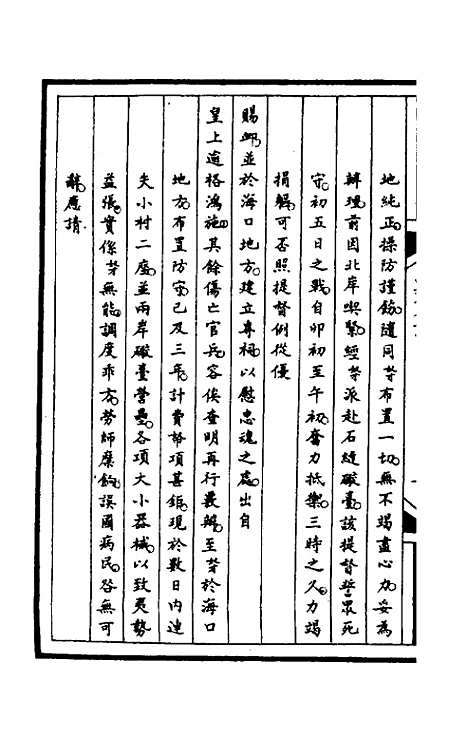 地純正操防謹飭隨同等布置一切無不竭盡心力妥為
辦理前因北岸喫緊經等派赴石縫礮臺該提督誓眾死
守初五日之戰自卯初至午初奮力抵禦三時之久力竭
捐軀可否照提督例從優
賜卹並於海口地方建立專祠以慰忠魂之處出自
皇上逾格鴻施其餘傷亡官兵容俟查明再行彙辦至等於海口
地方布置防守已及三年計費帑項甚鉅現於數日內連
失小村二座並兩岸礮臺營壘各項大小器械以致夷勢
益張實係等無能調度乖方勞師糜餉誤國病民咎無可
辭應請